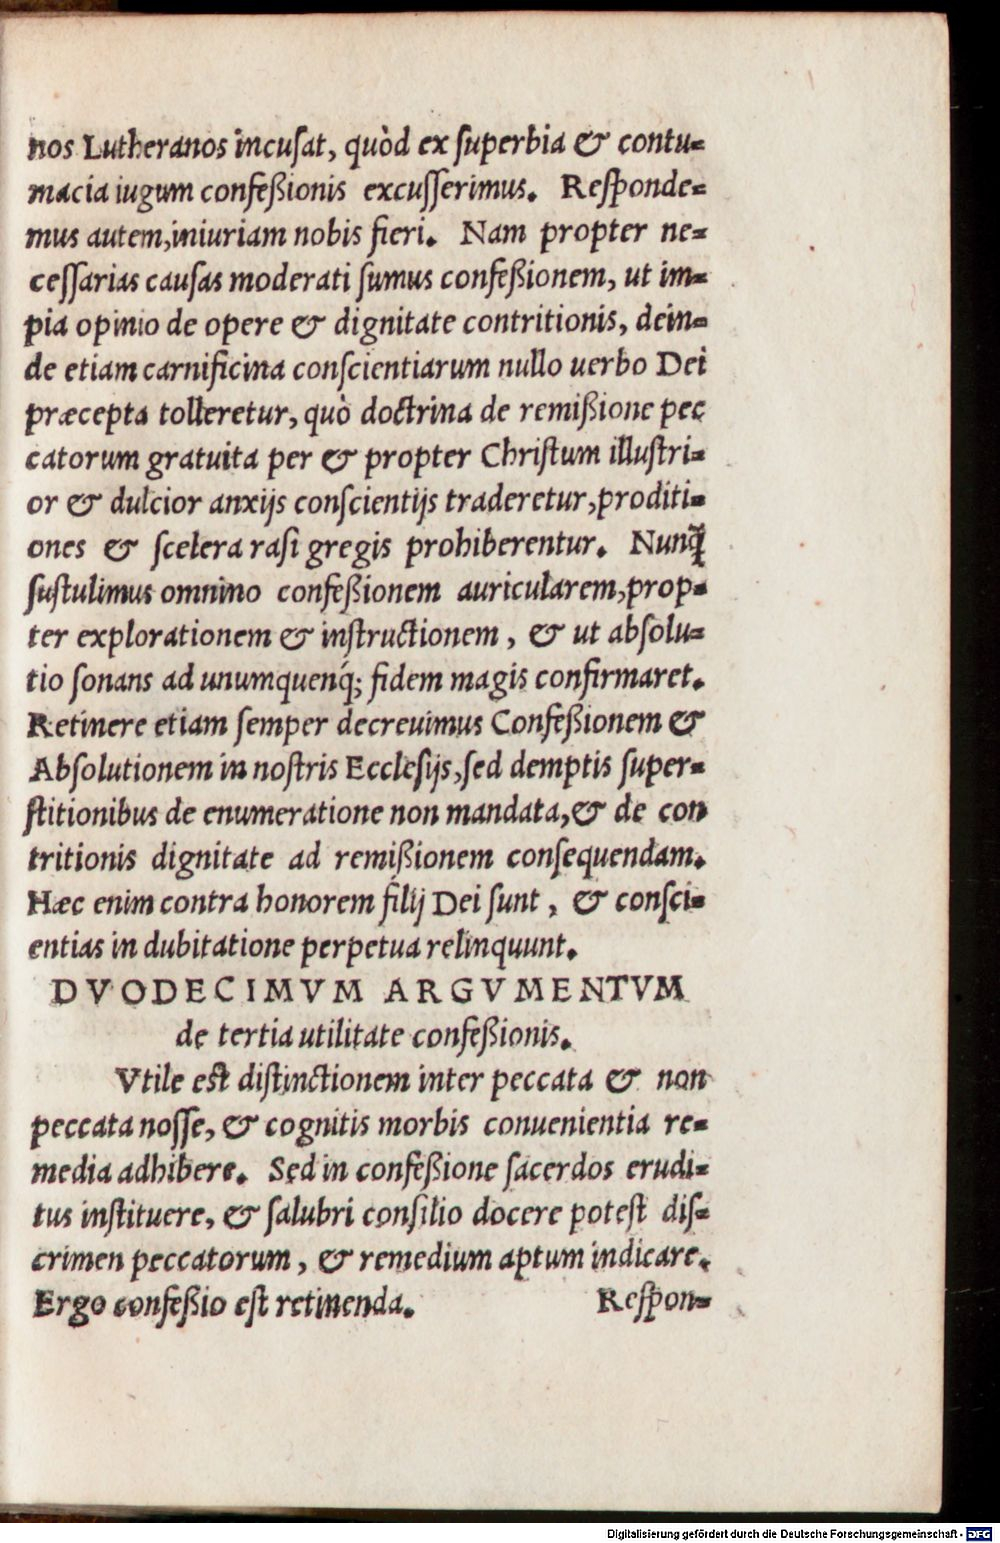 nos Lutheranos incusat, quòd ex superbia & contu-
macia iugum confeßionis excusserimus. Responde-
mus autem, iniuriam nobis fieri. Nam propter ne-
cessarias causas moderati sumus confeßionem, ut im-
pia opinio de opere & dignitate contritionis, dein-
de etiam carnificina conscientiarum nullo uerbo Dei
præcepta tolleretur, quò doctrina de remißione pec
catorum gratuita per & propter Christum illustri-
or & dulcior anxijs conscientijs traderetur, proditi-
ones & scelera rasi gregis prohiberentur. Nunq̃
sustulimus omnino confeßionem auricularem, prop-
ter explorationem & instructionem, & ut absolu-
tio sonans ad unumquenq́; fidem magis confirmaret.
Retinere etiam semper decreuimus Confeßionem &
Absolutionem in nostris Ecclesijs, sed demptis super-
stitionibus de enumeratione non mandata, & de con
tritionis dignitate ad remißionem consequendam.
Hæc enim contra honorem filij Dei sunt, & consci-
entias in dubitatione perpetua relinquunt.
DVODECIMVM ARGVMENTVM
de tertia utilitate confeßionis.
Vtile est distinctionem inter peccata & non
peccata nosse, & cognitis morbis conuenientia re-
media adhibere. Sed in confeßione sacerdos erudi-
tus instituere, & salubri consilio docere potest dis-
crimen peccatorum, & remedium aptum indicare.
Ergo confeßio est retinenda. Respon-
Digitalisierung gefördert durch die Deutsche Forschungsgemeinschaft - DFG